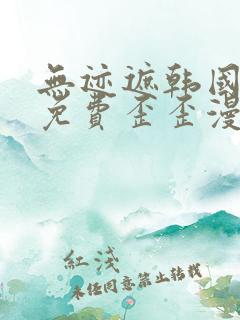 無迹遮韩國
免費歪歪漫
紅淺
未经同意禁止转载